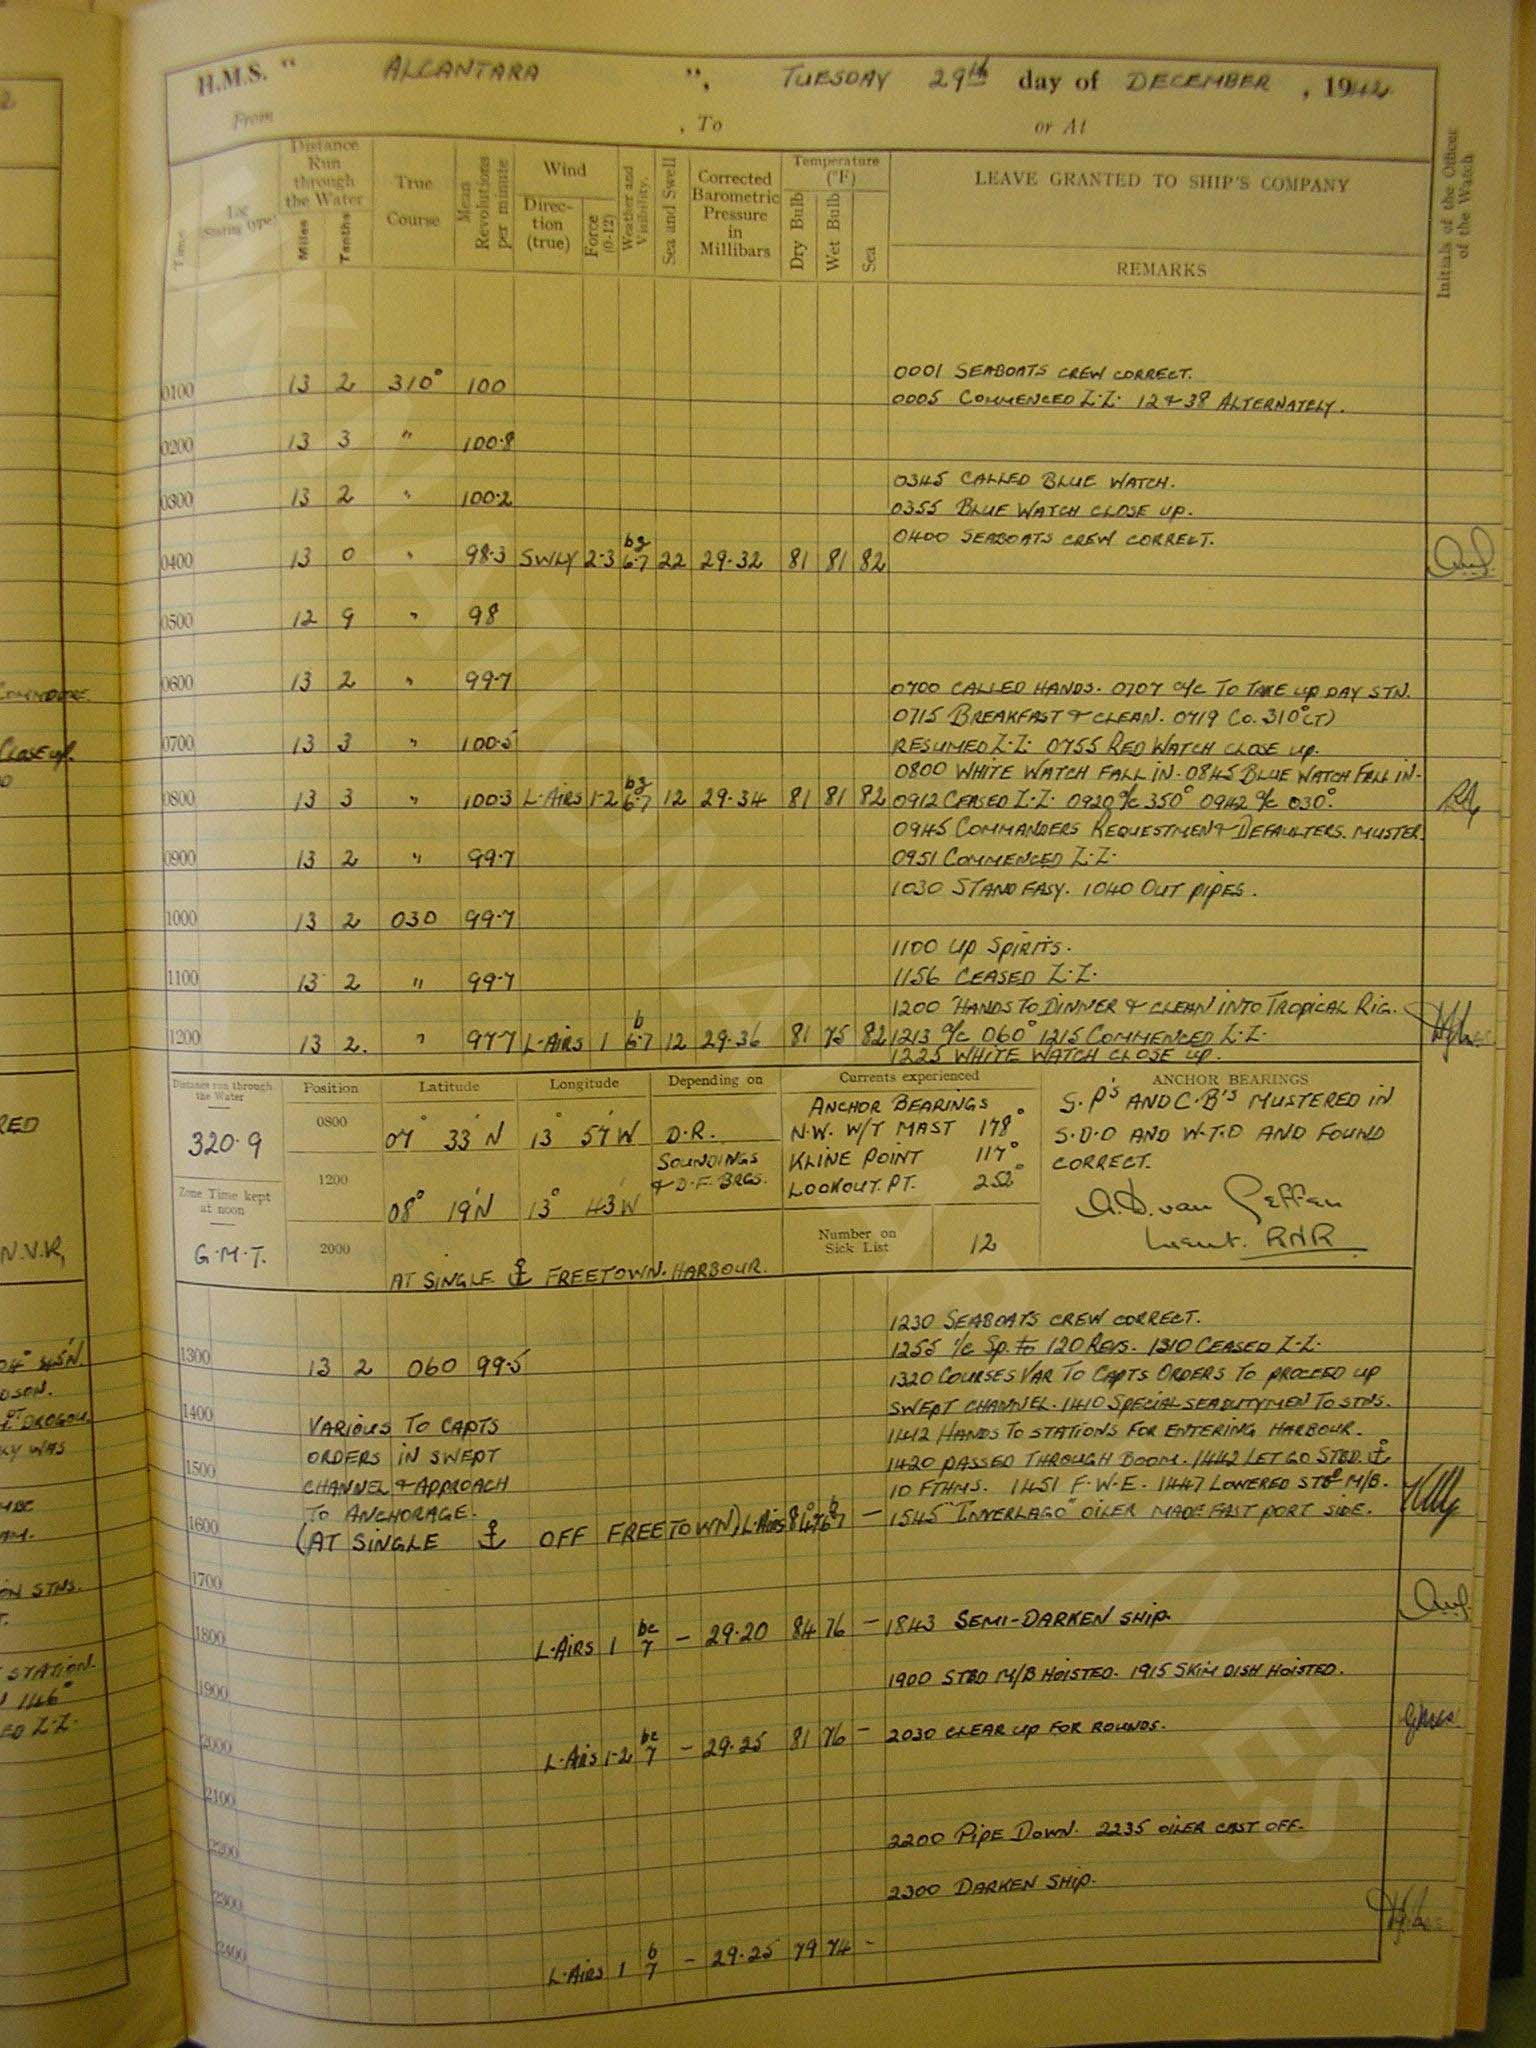 H.M.S. " ALCANTARA ", TUESDAY 29th day of DECEMBER, 1942
From , To or At
Time
Log
Distance Run through the Water
Miles Tenths
True Course
Mean Revolutions per minute
Wind
Direction (true)
Force (0-12)
Weather and Visibility.
Sea and Swell
Corrected Barometric Pressure in Millibars
Temperature (°F)
Dry Bulb Wet Bulb Sea
LEAVE GRANTED TO SHIP'S COMPANY
REMARKS
Initials of the Officer of the Watch
0001 SEABOATS CREW CORRECT.
0100 13 2 310° 100
0005 COMMENCED Z.Z. 12 & 38 ALTERNATELY.
0200 13 3 " 100.8
0345 CALLED BLUE WATCH.
0300 13 2 " 100.2
0355 BLUE WATCH CLOSE UP.
0400 SEABOATS CREW CORRECT.
0400 13 0 " 98.3 SWLY 2-3 bz 6.7 22 29.32 81 81 82
0500 12 9 " 98
0600 13 2 " 99.7
0700 CALLED HANDS. 0707 a/c TO TAKE UP DAY STN.
0715 BREAKFAST & CLEAN. 0719 Co. 310° (T)
0700 13 3 " 100.5
RESUMED Z.Z. 0755 RED WATCH CLOSE UP.
0800 WHITE WATCH FALL IN. 0845 BLUE WATCH FALL IN.
0800 13 3 " 100.3 L.AIRS 1-2 bz 6.7 12 29.34 81 81 82
0912 CEASED Z.Z. 0920 a/c 350° 0942 a/c 030°.
0945 COMMANDERS REQUESTMEN & DEFAULTERS. MUSTER.
0900 13 2 " 99.7
0951 COMMENCED Z.Z.
1030 STAND EASY. 1040 OUT PIPES.
1000 13 2 030 99.7
1100 UP SPIRITS.
1100 13 2 " 99.7
1156 CEASED Z.Z.
1200 HANDS TO DINNER & CLEAN INTO TROPICAL RIG.
1200 13 2. " 97.7 L.AIRS 1 b 6.7 12 29.36 81 75 82
1213 a/c 060° 1215 COMMENCED Z.Z.
1225 WHITE WATCH CLOSE UP.
Distance run through the Water
320.9
Zone Time kept at noon
G.M.T.
Position Latitude Longitude Depending on
0800 07° 33'N 13° 57'W D.R.
1200 08° 19'N 13° 43'W SOUNDINGS & D.F. BRGS.
2000 AT SINGLE ⚓ FREETOWN. HARBOUR.
Currents experienced
ANCHOR BEARINGS
N.W. W/T MAST 178°
KLINE POINT 117°
LOOKOUT. PT. 252°
Number on Sick List 12
ANCHOR BEARINGS
S.P's AND C.B's MUSTERED IN
S.D.O AND W.T.O AND FOUND
CORRECT.
van Geffen
Lieut. RNR
1230 SEABOATS CREW CORRECT.
1255 i/c Sp. to 120 REVS. 1310 CEASED Z.Z.
1300 13 2 060 99.5
1320 COURSES VAR TO CAPTS ORDERS TO PROCEED UP
SWEPT CHANNEL. 1410 SPECIAL SEADUTYMEN TO STNS.
1400 VARIOUS TO CAPTS
1412 HANDS TO STATIONS FOR ENTERING HARBOUR.
ORDERS IN SWEPT
1420 PASSED THROUGH BOOM. 1442 LET GO STBD. ⚓
1500 CHANNEL & APPROACH
10 FTHMS. 1451 F.W.E. 1447 LOWERED STBD M/B.
TO ANCHORAGE.
1545 "INVERLAGO" OILER MADE FAST PORT SIDE.
1600 (AT SINGLE ⚓ OFF FREETOWN) L.AIRS
1700
1800 L.AIRS 1 bc 7 - 29.20 84 76 -
1843 SEMI-DARKEN SHIP.
1900 STBD M/B HOISTED. 1915 SKIM DISH HOISTED.
1900
2000 L.AIRS 1-2 bc 7 - 29.25 81 76 -
2030 CLEAR UP FOR ROUNDS.
2100
2200 PIPE DOWN. 2235 OILER CAST OFF.
2200
2300 DARKEN SHIP.
2300
2400 L.AIRS 1 b 7 - 29.25 79 74 -
COMMODORE.
CLOSE UP.
N.V.R,
04° 45'N.
WAS
STNS.
STATION.
146°
Z.Z.
THE NATIONAL ARCHIVES